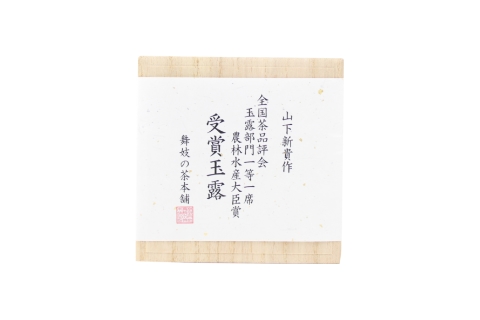 山下新貴作
全国茶品評会
玉露部門一等一席
農林水産大臣賞
受賞玉露
舞妓の茶本舗